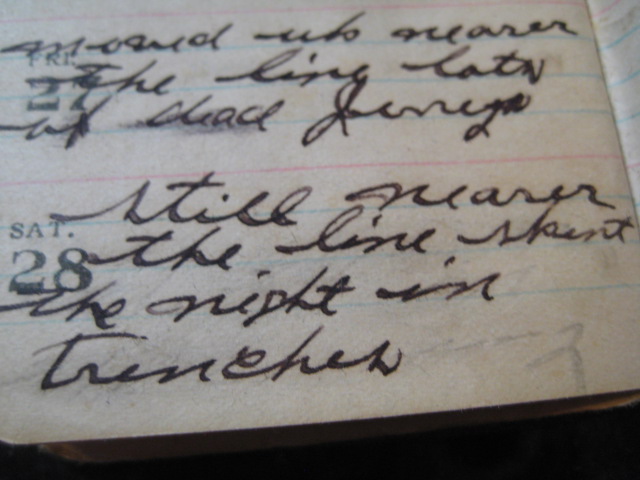 moved up nearer
FRI.
27 the line lots
of dead Jerrys
still nearer
SAT.
28 the line spent
the night in
trenches